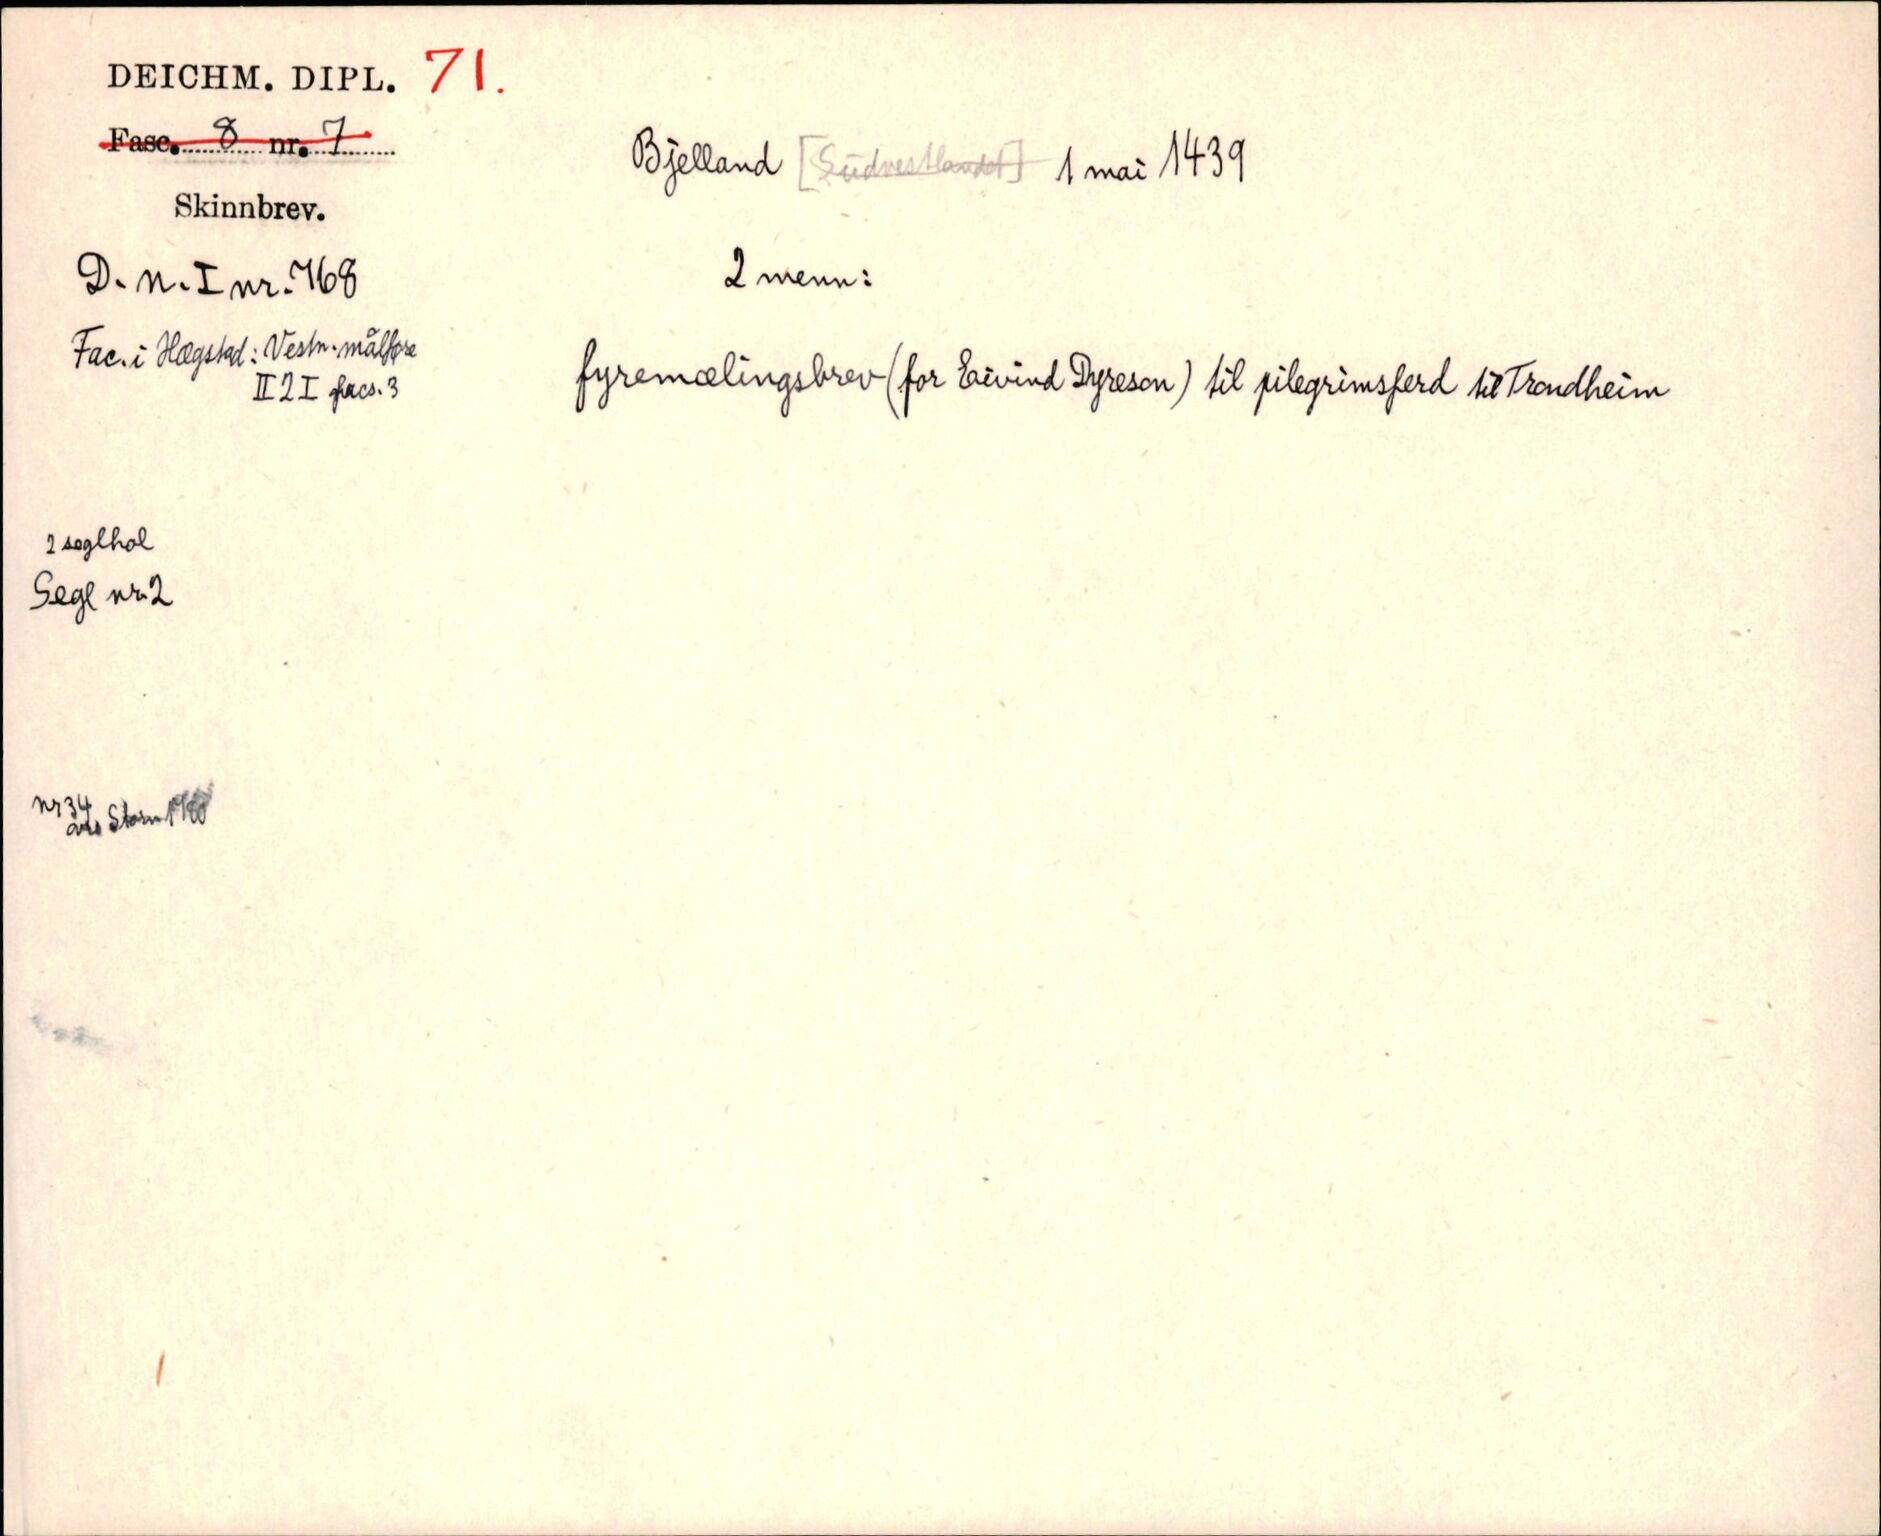 DEICHM. DIPL. 71.
Fasc. 8 nr. 7
Skinnbrev.
D. N. I nr. 768
Fac. i Hægstad: Vestn. målføre
II 2 I facs. 3
2 seglhol
Segl nr. 2
nr 34
Bjelland [Sudvestlandet] 1 mai 1439
2 menn:
fyremælingsbrev (for Eivind Dyreson) til pilegrimsferd til Trondheim